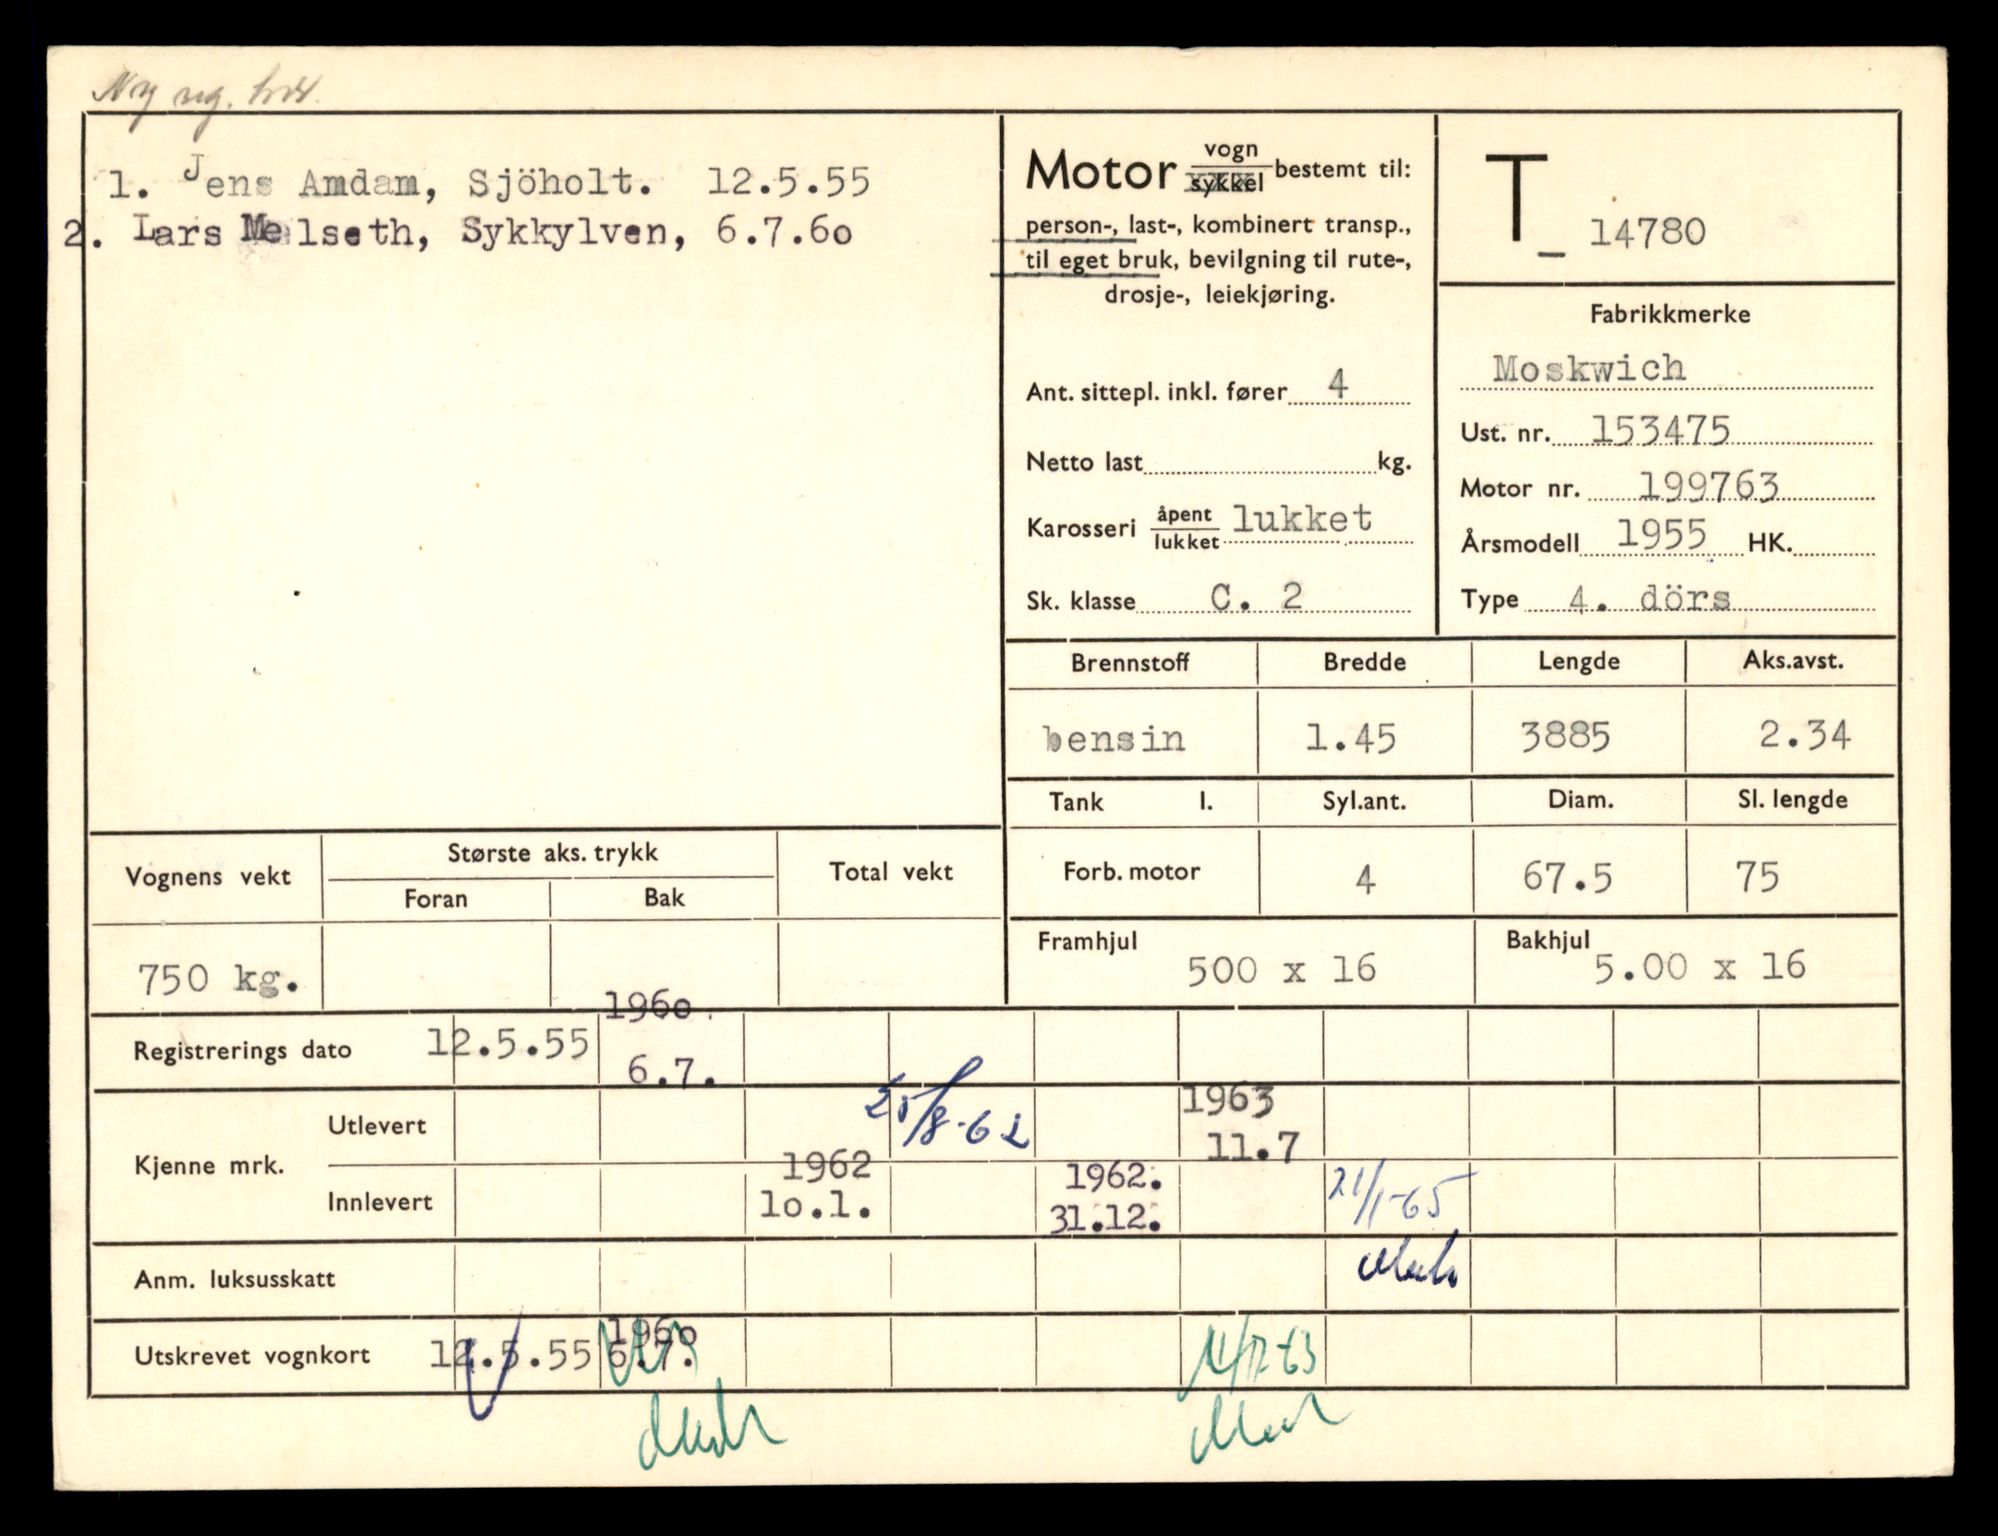 Ny reg.
1. Jens Amdam, Sjöholt. 12.5.55
2. Lars Melseth, Sykkylven, 6.7.6o
Motor vogn/sykkel bestemt til:
person-, last-, kombinert transp.,
til eget bruk, bevilgning til rute-,
drosje-, leiekjøring.
Ant. sittepl. inkl. fører 4
Netto last kg.
Karosseri åpent/lukket lukket
Sk. klasse C. 2
T_ 14780
Fabrikkmerke
Moskwich
Ust. nr. 153475
Motor nr. 199763
Årsmodell 1955 HK.
Type 4. dörs
Brennstoff Bredde Lengde Aks.avst.
bensin 1.45 3885 2.34
Tank l. Syl.ant. Diam. Sl. lengde
Forb. motor 4 67.5 75
Framhjul 500 x 16 Bakhjul 5.00 x 16
Vognens vekt Største aks. trykk Total vekt
Foran Bak
750 kg.
196o.
Registrerings dato 12.5.55 6.7.
Kjenne mrk.
Utlevert 25/8-62 1963 11.7
Innlevert 1962 1o.1. 1962. 31.12. 21/1-65
Anm. luksusskatt
Utskrevet vognkort 12.5.55 196o 6.7. 11/7-63